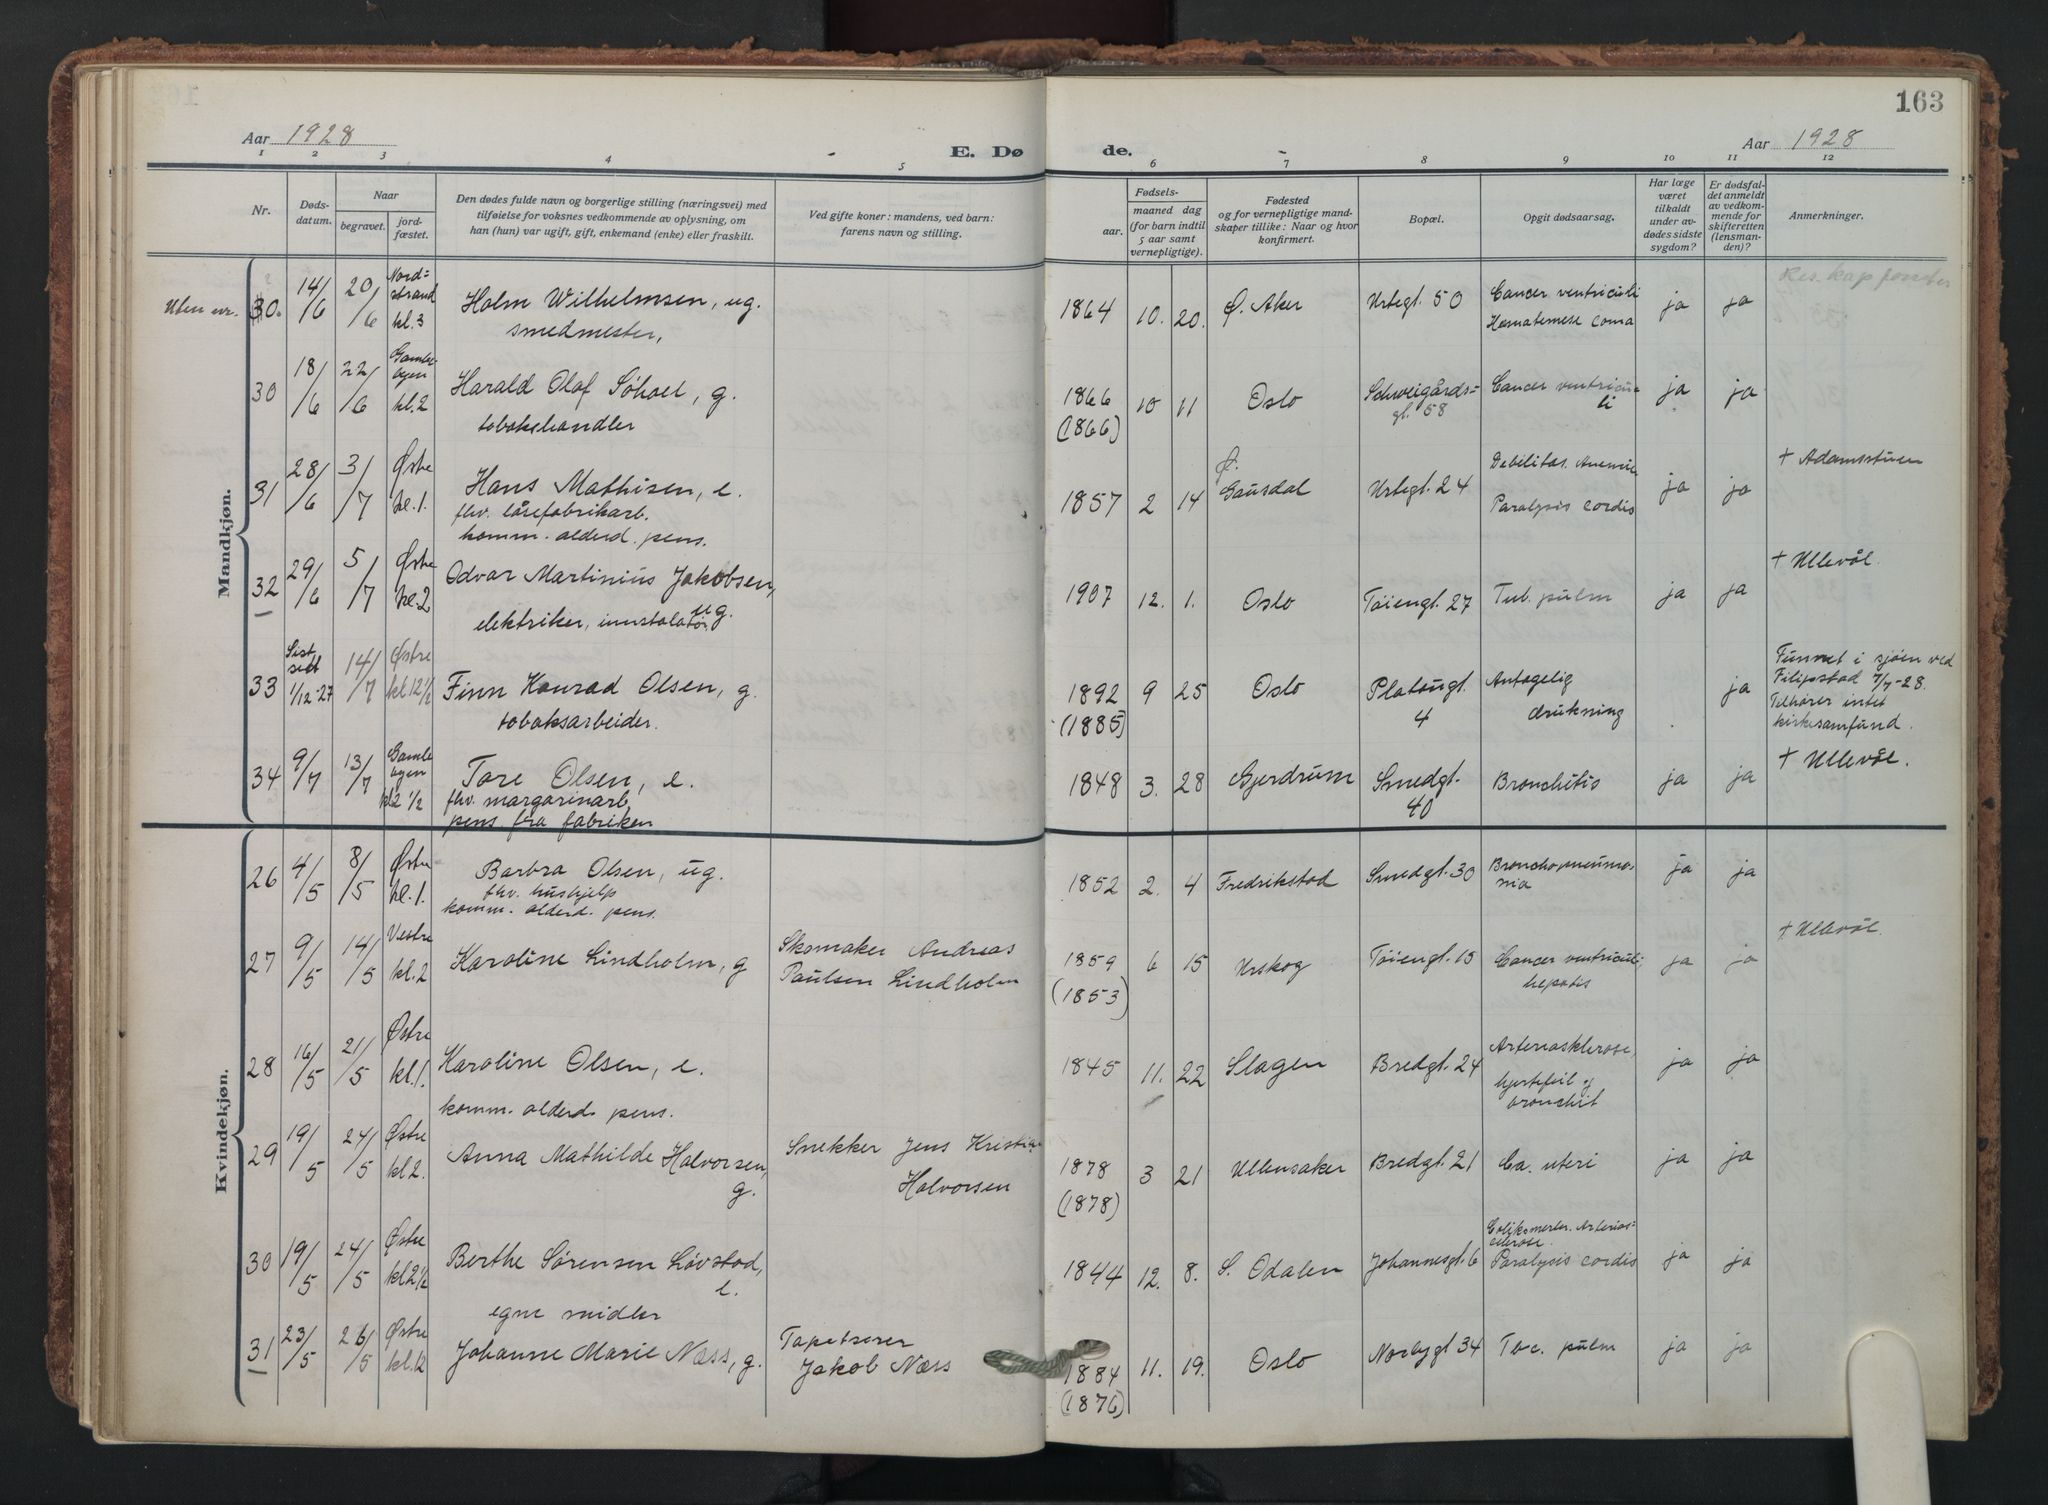 163
Aar 1928
E. Dø de.
Aar 1928
1 2 3 4 5 6 7 8 9 10 11 12
Nr.
Døds-
datum.
Naar
begravet.
jord-
fæstet.
Den dødes fulde navn og borgerlige stilling (næringsvei) med
tilføielse for voksnes vedkommende av oplysning, om
han (hun) var ugift, gift, enkemand (enke) eller fraskilt.
Ved gifte koner: mandens, ved barn:
farens navn og stilling.
Fødsels-
aar.
maaned dag
(for barn indtil
5 aar samt
vernepligtige).
Fødested
og for vernepligtige mand-
skaper tillike: Naar og hvor
konfirmert.
Bopæl.
Opgit dødsaarsag.
Har læge
været
tilkaldt
under av-
dødes sidste
sygdom?
Er dødsfal-
det anmeldt
av vedkom-
mende for
skifteretten
(lensman-
den)?
Anmerkninger.
Mandkjøn.
Uten nr. 30. 14/6 20/6 Nord-
strand
kl. 3
Holm Wilhelmsen, ug.
smedmester,
1864 10. 20. Ø. Aker Urtegt. 50 Cancer ventriculi
Hæmatemese coma
ja ja
30 18/6 22/6 Gamle-
byen
kl. 2
Harald Olaf Söhoel, g.
tobakshandler
1866
(1866)
10 11 Oslo Schweigårds-
gt. 58
Cancer ventricu-
li
ja ja
31 28/6 3/7 Østre
kl. 1.
Hans Mathisen, e.
fhv. lærefabrikarb.
komm. alderd. pens.
1857 2 14 Ø.
Gausdal
Urtegt. 24 Debilitas. Anemie
Paralysis cordis
ja ja + Adamsstuen
32 29/6 5/7 Østre
kl. 2
Odvar Martinius Jakobsen,
elektriker, innstalatør ug.
1907 12. 1. Oslo Töiengt. 27 Tub. pulm ja ja + Ullevål.
33 Sist
sett
1/12-27
14/7 Østre
kl 12 1/2
Finn Konrad Olsen, g.
tobaksarbeider.
1892
(1885)
9 25 Oslo Platougt.
4
Antagelig
drukning
ja Funnet i sjöen ved
Filipstad 7/7-28.
Tilhører intet
kirkesamfund.
34 9/7 13/7 Gamle
byen
kl 2 1/2
Tore Olsen, e.
fhv. margarinarb,
pens. fra fabriken
1848 3. 28 Gjerdrum Smedgt.
40
Bronchitis ja ja + Ullevål.
Kvindekjøn.
26 4/5 8/5 Østre
kl. 1.
Barbra Olsen, ug.
fhv. hushjelp
komm. alderd. pens.
1852 2. 4 Fredrikstad Smedgt. 30 Bronchopneumo-
nia
ja ja
27 9/5 14/5 Vestre
kl. 2
Karoline Lindholm, g
Skomaker Andreas
Paulsen Lindholm
1859
(1853)
6 15 Urskog Töiengt. 15 Cancer ventriculi,
hepatis
ja ja + Ullevål.
28 16/5 21/5 Østre
kl. 1.
Karoline Olsen, e.
komm. alderd. pens.
1845 11. 22 Slagen Bredgt. 24 Arteriosklerose,
hjertefeil og
bronchit
ja ja
29 19/5 24/5 Østre
kl 2.
Anna Mathilde Halvorsen,
g.
Snekker Jens Kristian
Halvorsen
1878
(1878)
3 21 Ullensaker Bredgt. 21 Ca. uteri ja ja
30 19/5 24/5 Østre
kl 2 1/2
Berthe Sørensen Løvstad,
e.
egne midler
1844 12. 8. S. Odalen Johannesgt. 6 Koliksmerter. Arterios-
clerose.
Paralysis cordis
ja ja
31 23/5 26/5 Østre
kl. 12
Johanne Marie Næss, g.
Tapetserer
Jakob Næss
1884
(1876)
11. 19. Oslo Norbygt 34 Tbc. pulm ja ja